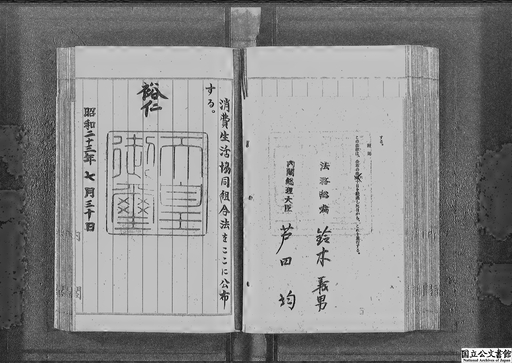 する。
法務総裁 鈴木義男
内閣総理大臣 芦田均
消費生活協同組合法をここに公布
する。
裕仁
天皇御璽
昭和二十三年七月三十日
内閣
国立公文書館
National Archives of Japan